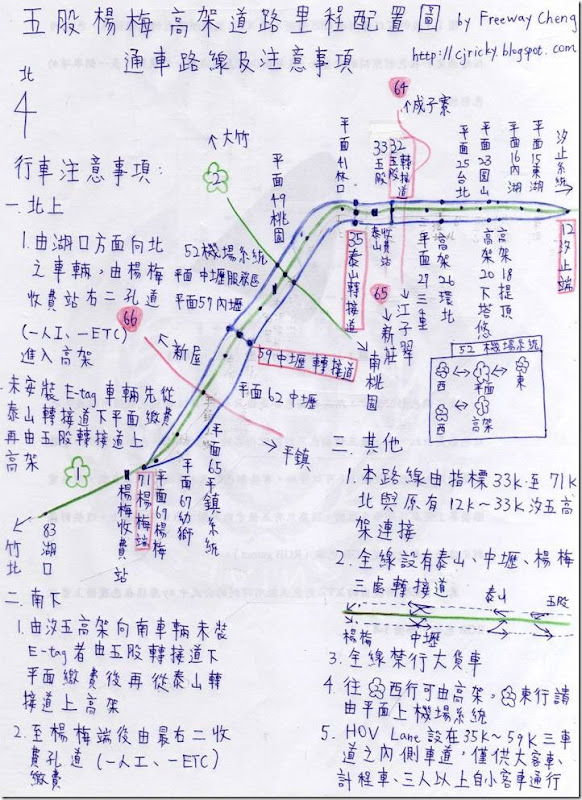 五股楊梅高架道路里程配置圖 by Freeway Cheng
通車路線及注意事項 http://cjricky.blogspot.com
北
64
↑成子寮
↖大竹
2
平面41林口
33五股
32五股轉接道
平面25台北
平面23圓山
平面16內湖
平面15東湖
汐止系統
行車注意事項:
平面49桃園
一.北上
1.由湖口方面向北
之車輛,由楊梅
收費站右二孔道
(一人工、一ETC)
進入高架
未安裝E-tag車輛先從
泰山轉接道下平面繳費
再由五股轉接道上
高架
52機場系統
平面中壢服務區
平面57內壢
35泰山轉接道
泰山收費站
65
↓新莊
↓江子翠
平面27三重
高架26環北
高架20下塔悠
高架18堤頂
12汐止端
66
↖新屋
59中壢轉接道
↘南桃園
52機場系統
西 平面 東
西 高架
平面62中壢
→平鎮
1
平面65平鎮系統
平面67幼獅
平面69楊梅
71楊梅端
楊梅收費站
83湖口
↙竹北
三.其他
1.本路線由指標33K至71K
北與原有12K~33K汐五高
架連接
2.全線設有泰山、中壢、楊梅
三處轉接道
泰山 五股
楊梅 中壢
3.全線禁行大貨車
4.往2西行可由高架,2東行請
由平面上機場系統
5.HOV Lane設在35K~59K三車
道之內側車道,僅供大客車、
計程車、三人以上自小客車通行
二.南下
1.由汐五高架向南車輛未裝
E-tag者由五股轉接道下
平面繳費後再從泰山轉
接道上高架
2.至楊梅端後由最右二收
費孔道(一人工、一ETC)
繳費